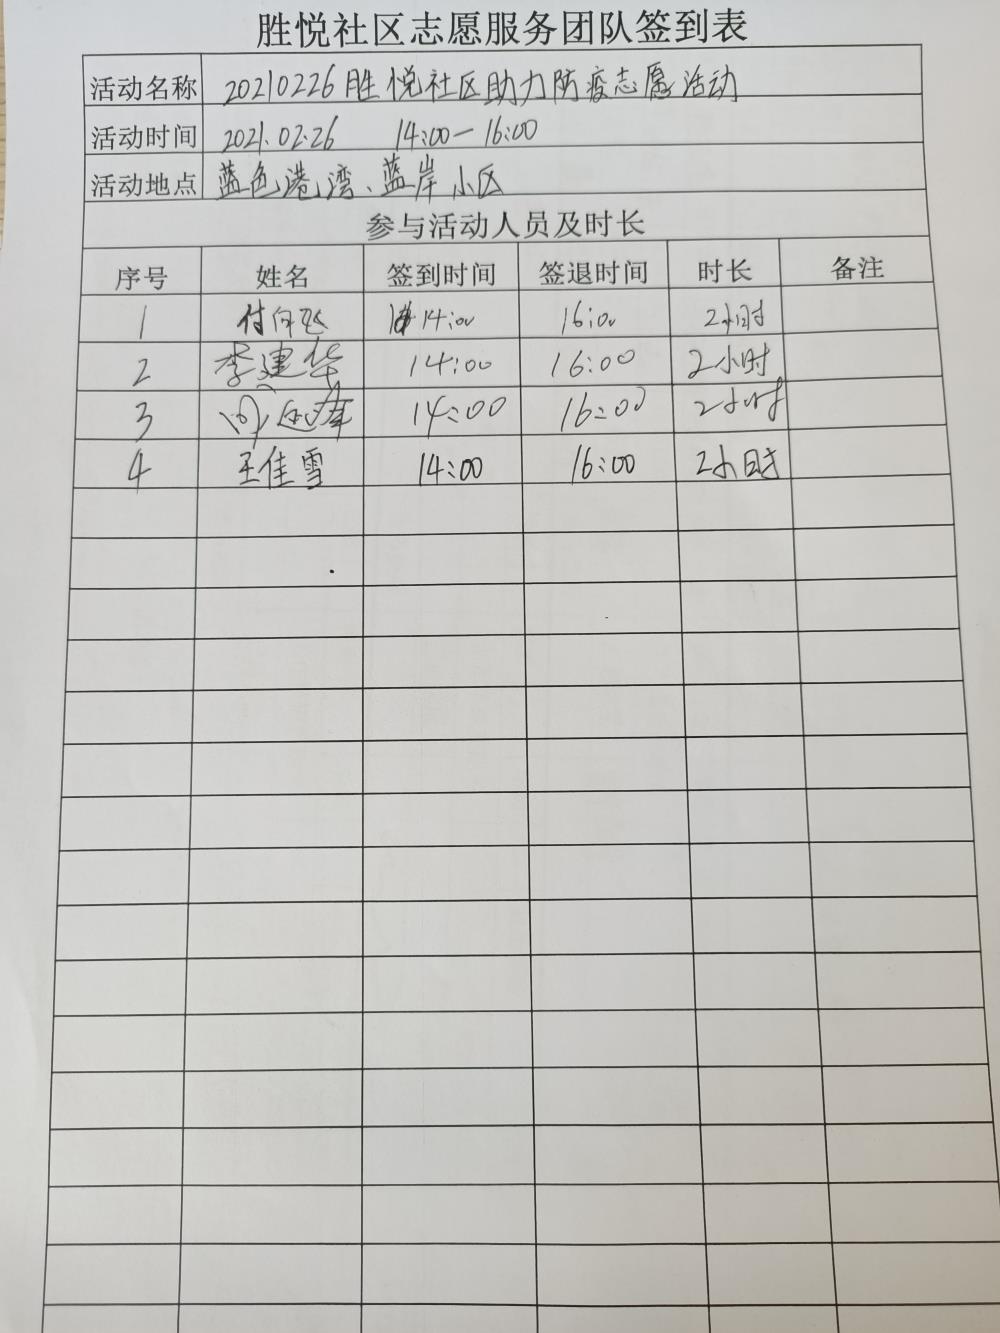 胜悦社区志愿服务团队签到表
活动名称 20210226胜悦社区助力防疫志愿活动
活动时间 2021.02.26 14:00—16:00
活动地点 蓝色港湾、蓝岸小区
参与活动人员及时长
序号 姓名 签到时间 签退时间 时长 备注
1 付向飞 14:00 16:00 2小时
2 李建华 14:00 16:00 2小时
3 14:00 16:00 2小时
4 王佳雪 14:00 16:00 2小时